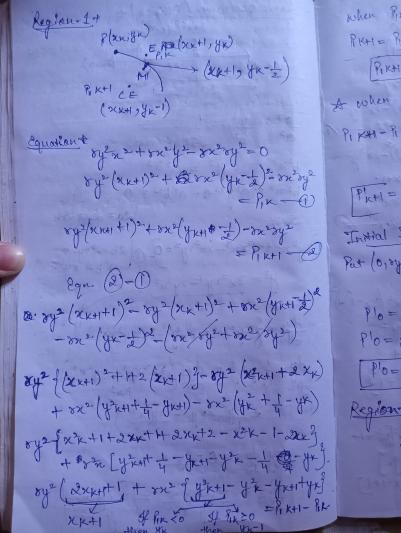 Region-1 →
P(xk, yk)
E (xk+1, yk)
P1k
M1 → (xk+1, yk-½)
P1k+1
E
(xk+1, yk-1)
Equation →
ry²x² + rx²y² - rx²ry² = 0
ry²(xk+1)² + rx²(yk-½)² - rx²ry²
= P1k - ①
ry²(xk+1+1)² + rx²(yk+1-½)² - rx²ry²
= P1k+1 - ②
Eqn ② - ①
ry²(xk+1+1)² - ry²(xk+1)² + rx²(yk+1-½)²
- rx²(yk-½)² - (rx²ry² + rx²ry²)
ry²{(xk+1)²+1+2(xk+1)} - ry²(x²k+1+2xk)
+ rx²(y²k+1+¼-yk+1) - rx²(yk²+¼-yk)
ry²{x²k+1+2xk+1+2xk+2-x²k-1-2xk}
+ r²x{y²k+1+¼-yk+1-y²k-¼-yk}
ry²{2xk+1+1 + rx²{y²k+1-y²k-yk+1+yk}
= P1k+1 - P1k
xk+1
If P1k<0 If P1k≥0
then yk then yk-1
when P1
P1k+1 = P
P1k+1
when
P1k+1 - P1
P'k+1 =
Initial
Put (0, ry
P'0 =
P'0 =
P'0 =
Region-